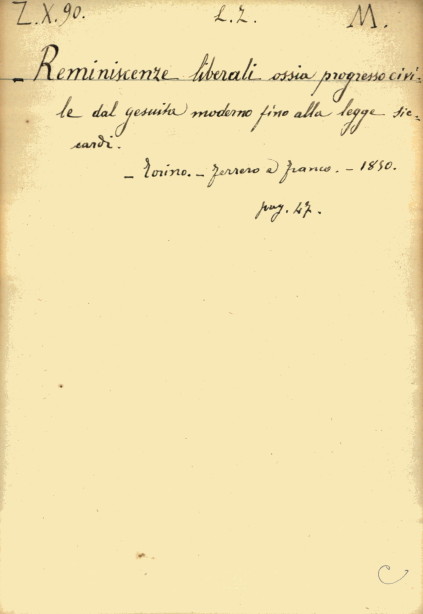 Z.X.90. L.Z. M.
- Reminiscenze liberali ossia progresso civi-
le dal gesuita moderno fino alla legge sic-
cardi.
- Torino. - Ferrero e Franco. - 1850.
pag. 47.